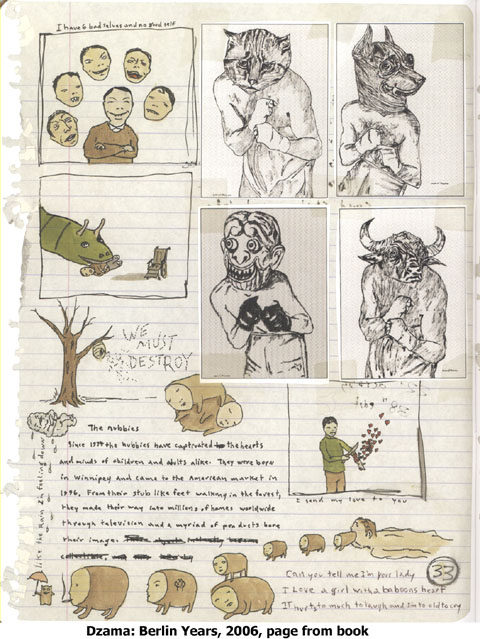 I have 6 bad selves and no good self
WE
MUST
DESTROY
The nubbies
the hubbies have captivated the hearts
and minds of children and adults alike. They were born
in Winnipeg and came to the American market in
1996. From their stub like feet walking in the forest,
they made their way into millions of homes worldwide
through television and a myriad of products bore
their image.
I send my love to you
like the rain I'm falling down
33
Can you tell me I'm your lady
I Love a girl with a baboons heart
IT hurts to much to laugh and I'm to old to cry
Dzama: Berlin Years, 2006, page from book